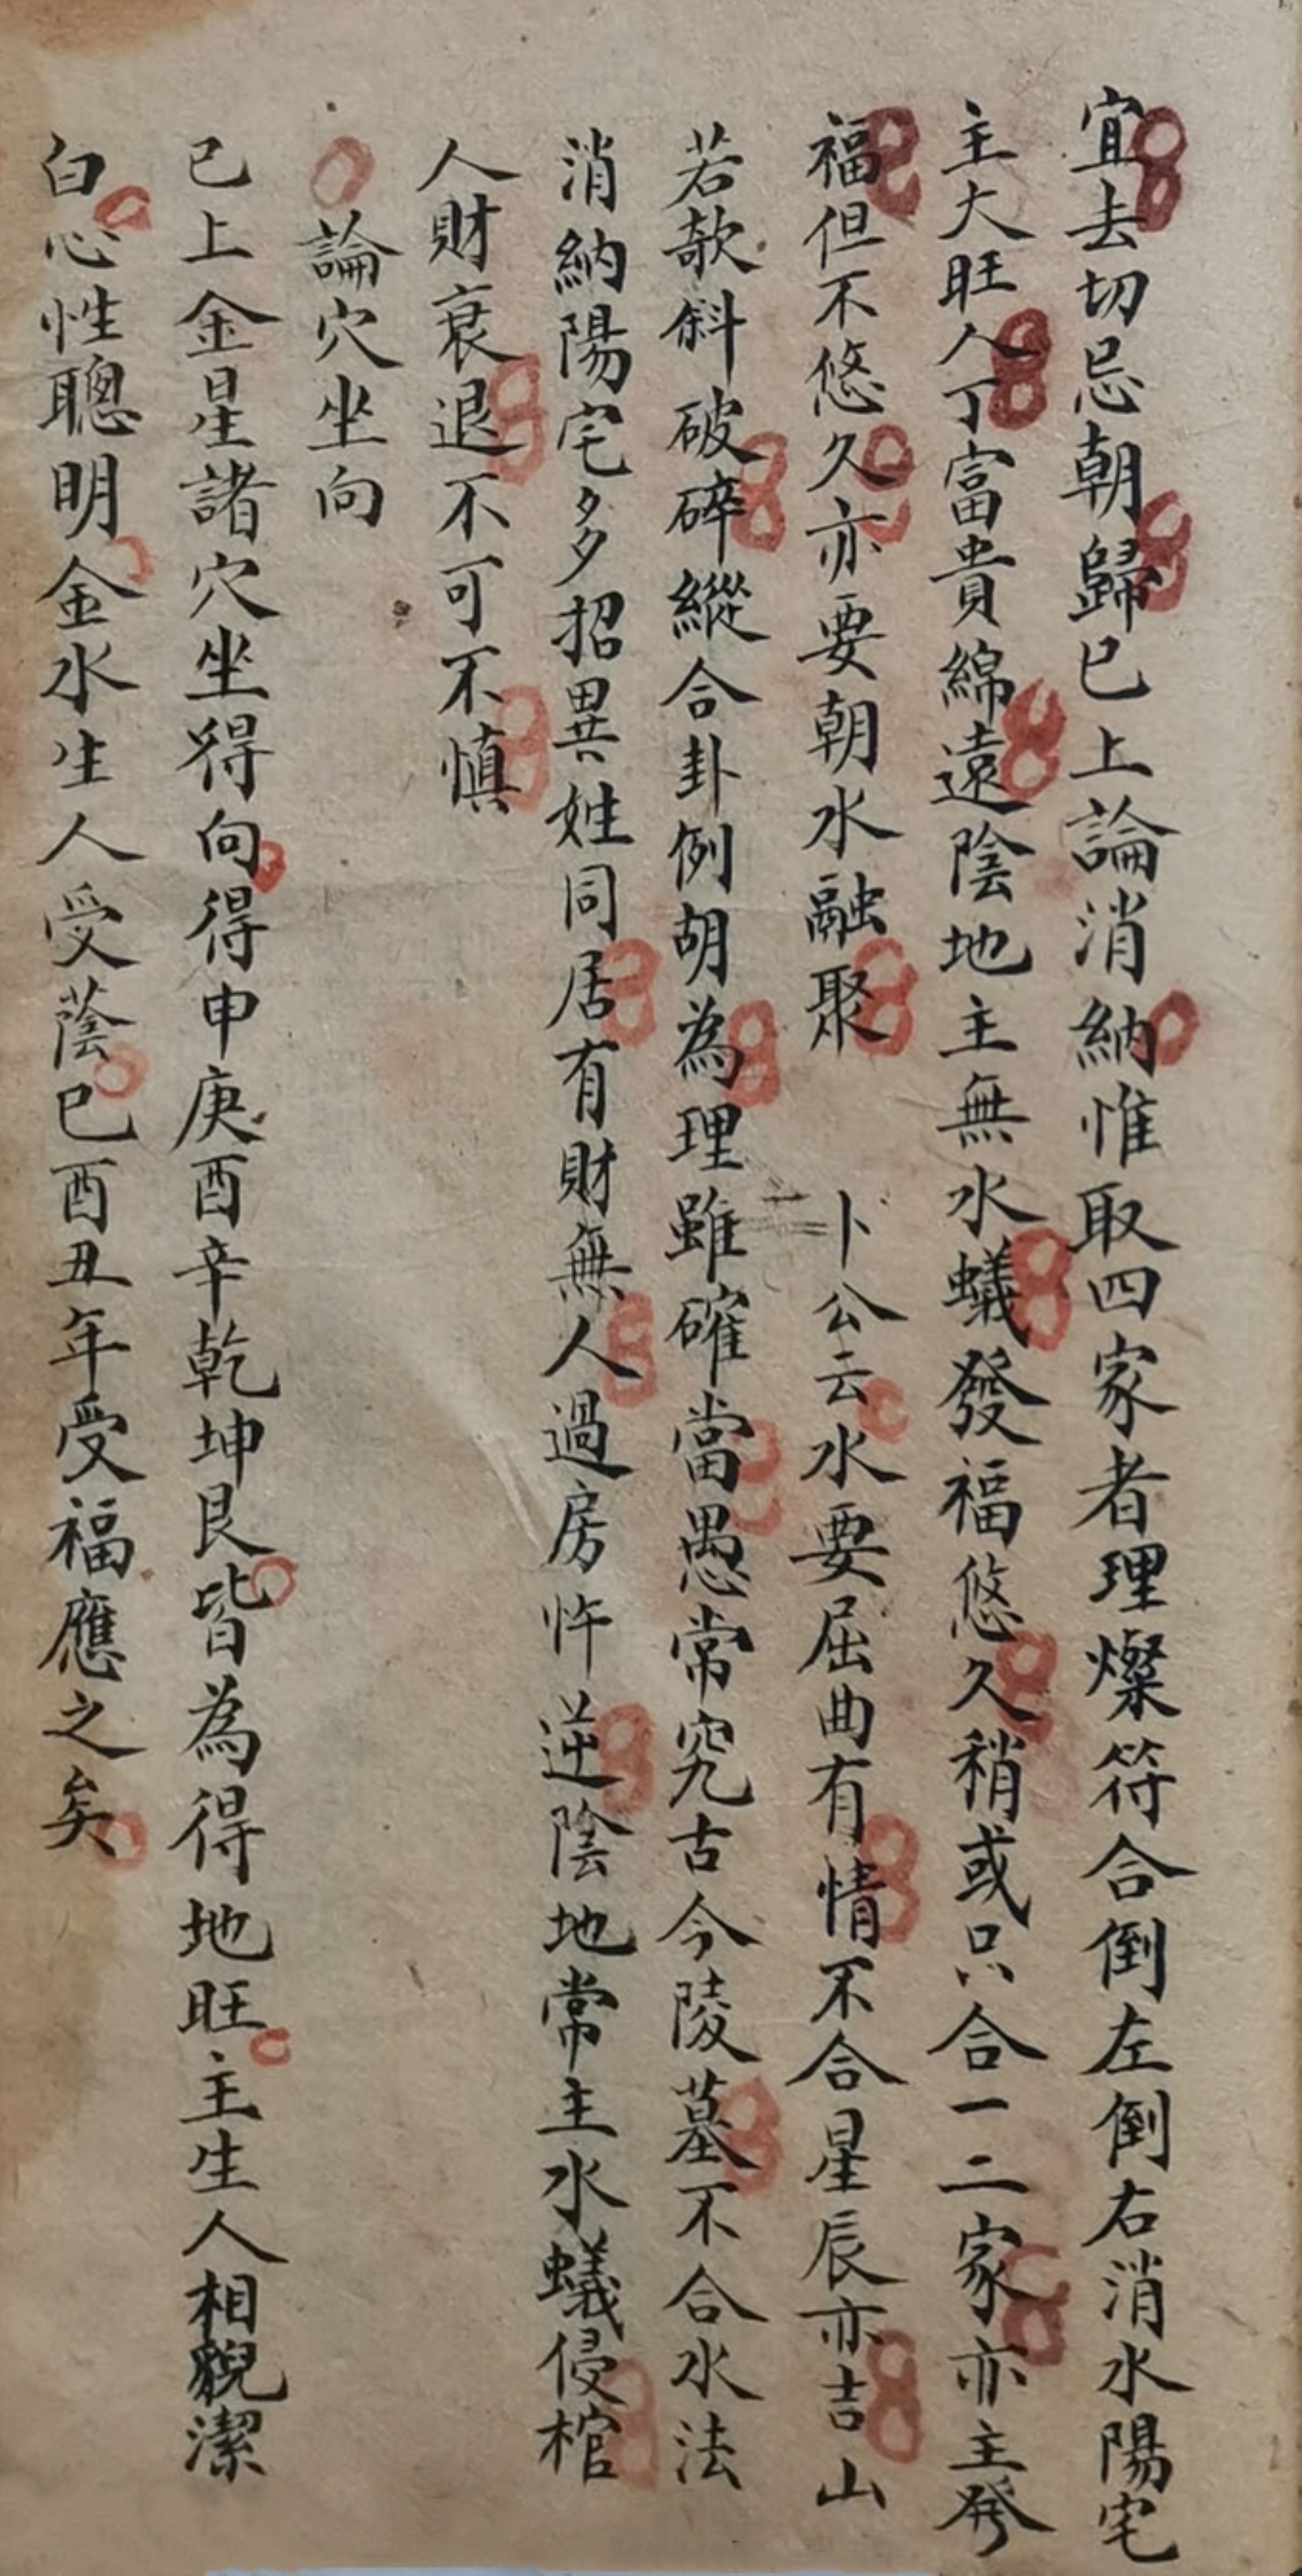 宜去切忌朝歸已上論消納惟取四家者理燦符合倒左倒右消水陽宅
主大旺人丁富貴綿遠陰地主無水蟻發福悠久稍或只合一二家亦主発
福但不悠久亦要朝水融聚 卜公云水要屈曲有情不合星辰亦吉山
若欹斜破碎縱合卦例胡為理雖確當愚常究古今陵墓不合水法
消納陽宅多招異姓同居有財無人過房忤逆陰地常主水蟻侵棺
人財衰退不可不慎
論穴坐向
已上金星諸穴坐得向得申庚酉辛乾坤艮皆為得地旺主生人相貌潔
白心性聰明金水生人受蔭巳酉丑年受福應之矣